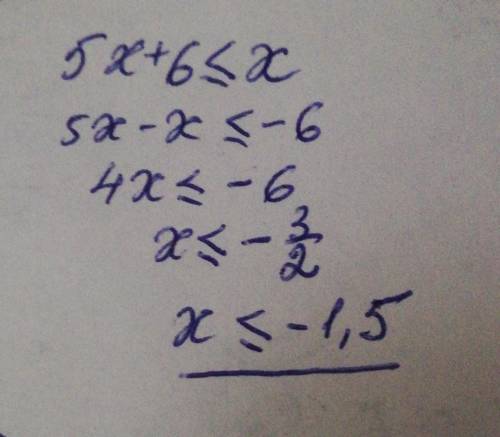 5x+6≤x
5x-x≤-6
4x≤-6
x≤-3/2
x≤-1,5